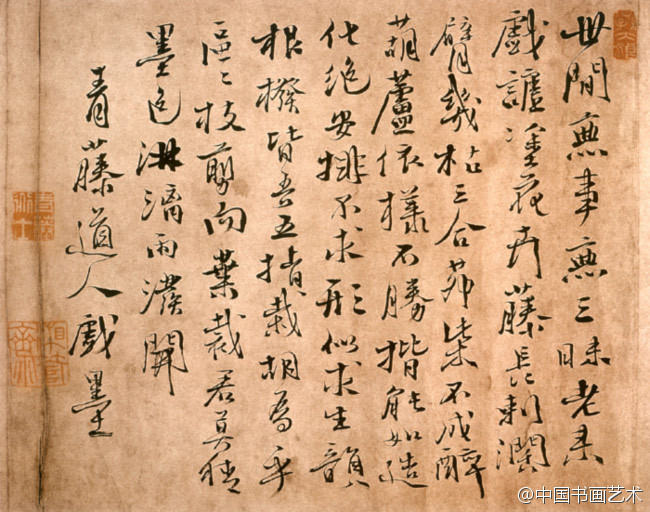 世間無事無三昧老來
戲謔塗花卉藤長刺濶
臂幾枯三合茆柴不成醉
葫蘆依樣不勝揩能如造
化絕安排不求形似求生韻
根撥皆吾五指栽胡爲乎
區區枝剪而葉裁君莫猜
墨色淋漓雨潑開
青藤道人戲墨
@中国书画艺术